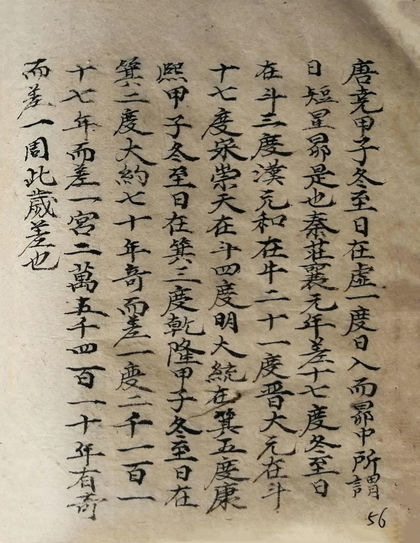 唐尭甲子冬至日在虛一度日入而昴中所謂
日短星昴是也秦莊襄元年差十七度冬至日
在斗三度漢元和在牛二十一度晉大元在斗
十七度宋崇天在斗四度明大統在箕五度康
熙甲子冬至日在箕三度乾隆甲子冬至日在
箕二度大約七十年奇而差一度二千一百一
十七年而差一宮二萬五千四百一十年有奇
而差一周此歲差也
56